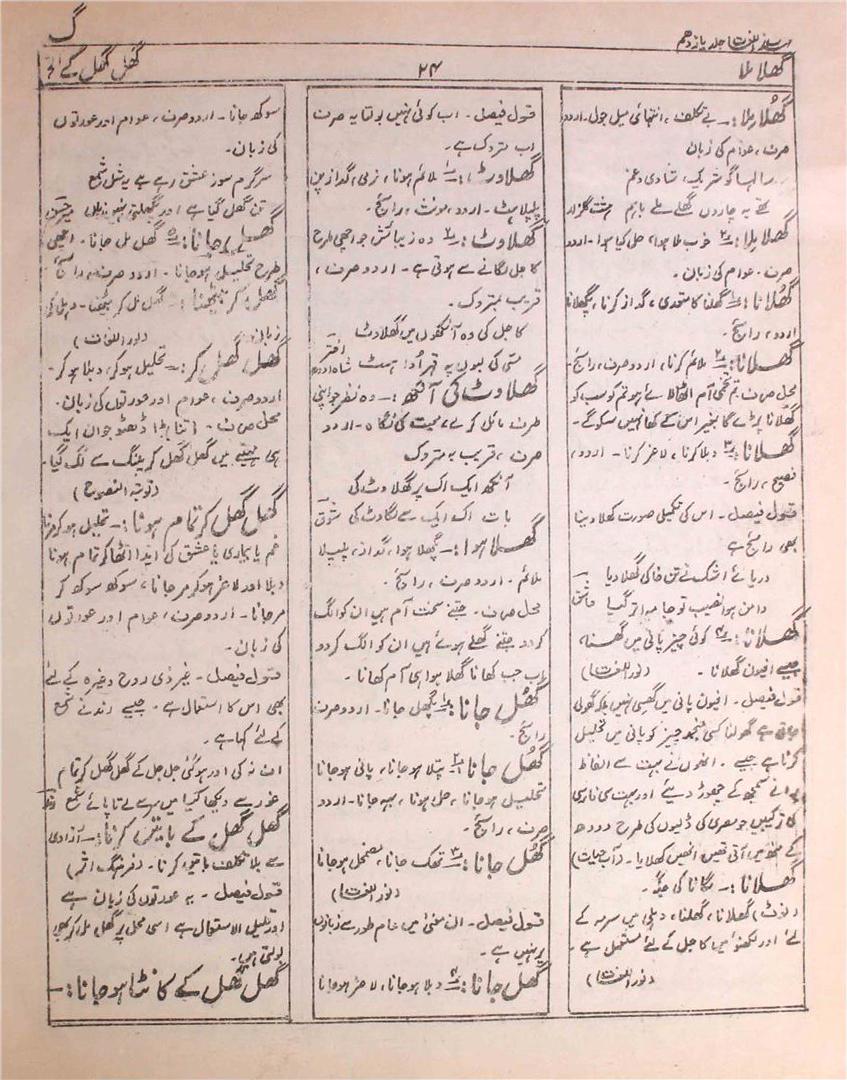 گ
مہذب اللغات جلد یازدہم
گھلا ملا
۲۴
گھل گھل کے
گھلا ملا:۔ بے تکلف، انتہائی میل جول۔ اردو
صرف، عوام کی زبان
شریک، شادی و غم
تھے یہ چاروں گھلے ملے باہم
گھلا ملا: ۲ خوب ملا ہوا، حل کیا ہوا۔ اردو
صرف۔ عوام کی زبان۔
گھلانا: ۱ گھلنا کا متعدی، گداز کرنا، پگھلانا
اردو، رائج۔
گھلانا: ۲ ملائم کرنا، اردو صرف، رائج۔
محل صرف۔ تم تخمی آم اٹھا لائے ہو تم کو سب کو
گھلانا پڑے گا بغیر اس کے کھا نہیں سکو گے۔
گھلانا: ۳ دبلا کرنا، لاغر کرنا۔ اردو،
فصیح، رائج۔
قول فیصل۔ اس کی تکمیلی صورت گھلا دینا
بھی رائج ہے
دریائے اشک نے تن خاکی گھلا دیا
دامن ہوا نصیب تو جامہ اتر گیا
گھلانا: ۴ کوئی چیز پانی میں گھسنا،
جیسے افیون گھلانا۔ (نور اللغات)
قول فیصل۔ افیون پانی میں گھسی نہیں بلکہ گھولی
جاتی ہے گھولنا کسی منجمد چیز کو پانی میں تحلیل
کرنا ہے جیسے۔ انھوں نے بہت سے الفاظ
پرانے سمجھ کے چھوڑ دیئے اور بہت سی فارسی
کی ترکیبیں جو مصری کی ڈلیوں کی طرح دودھ
کے منھ میں آتی تھیں انھیں گھلایا۔ (آب حیات)
گھلانا:۔ لگانا کی جگہ۔
(نوٹ) گھلانا، گھلنا، دہلی میں سرمہ کے
لئے اور لکھنؤ میں کاجل کے لئے مستعمل ہے۔
(نور اللغات)
قول فیصل۔ اب کوئی نہیں بولتا یہ صرف
اب متروک ہے۔
گھلاوٹ: ۱ ملائم ہونا، نرمی، گداز پن
پلپلاہٹ۔ اردو، مونث، رائج۔
گھلاوٹ: ۲ وہ زیبائش جو اچھی طرح
کاجل لگانے سے ہوتی ہے۔ اردو صرف،
قریب بمتروک۔
کاجل کی وہ آنکھوں میں گھلاوٹ
مسی کی لبوں پہ قہر اداہٹ
گھلاوٹ کی آنکھ:۔ وہ نظر جو اپنی
طرف مائل کرے، محبت کی نگاہ۔ اردو
صرف، قریب بہ متروک
آنکھ ایک اک پر گھلاوٹ کی
بات اک ایک سے لگاوٹ کی شوق
گھلا ہوا:۔ پگھلا ہوا، گداز، پلپلا
ملائم۔ اردو صرف، رائج۔
محل صرف۔ جتنے سخت آم ہیں ان کو الگ
کر دو جتنے گھلے ہوئے ہیں ان کو الگ کر دو
اب جب کھانا گھلا ہوا ہی آم کھانا۔
گھل جانا: ۱ پگھل جانا۔ اردو صرف
رائج۔
گھل جانا: ۲ پتلا ہو جانا، پانی ہو جانا
تحلیل ہو جانا، حل ہونا، بہہ جانا۔ اردو
صرف، رائج۔
گھل جانا: ۳ تھک جانا، مضمحل ہو جانا
(نور اللغات)
قول فیصل۔ ان معنی میں عام طور سے زبانوں
پر نہیں ہے۔
گھل جانا: ۴ دبلا ہو جانا، لاغر ہو جانا
سوکھ جانا۔ اردو صرف، عوام اور عورتوں
کی زبان۔
سرگرم سوز عشق رہے ہے یہ مثل شمع
تن گھل گیا ہے اور پگھلتی
گھل جانا: ۵ گھل مل جانا۔ اچھی
طرح تحلیل ہو جانا۔ اردو صرف، رائج
گھل کر بیٹھنا:۔ گھل مل کر بیٹھنا۔ دہلی کی
زبان (نور اللغات)
گھل گھل کر:۔ تحلیل ہو کر، دبلا ہو کر۔
اردو صرف، عوام اور عورتوں کی زبان۔
محل صرف۔ اتنا بڑا ڈھٹو جوان ایک
ہی مہینے میں گھل گھل کر پلنگ سے لگ گیا۔
(توبۃ النصوح)
گھل گھل کر تمام ہونا:۔ تحلیل ہو کر مرنا
غم یا بیماری یا عشق کی ایذا اٹھا کر تمام ہونا
دبلا اور لاغر ہو کر مر جانا، سوکھ سوکھ کر
مر جانا۔ اردو صرف، عوام اور عورتوں
کی زبان۔
قول فیصل۔ غیر ذی روح وغیرہ کے لئے
بھی اس کا استعمال ہے۔ جیسے رند نے شمع
کے لئے کہا ہے۔
اف نہ کی اور ہو گئی جل جل کے گھل گھل کر تمام
غور سے دیکھا کیا میں سر سے تا پائے شمع رند
گھل گھل کے باتیں کرنا:۔ آزادی
سے بلا تکلف باتیں کرنا۔ (فرہنگ اثر)
قول فیصل۔ یہ عورتوں کی زبان ہے
اور قلیل الاستعمال ہے اسی محل پر گھل مل کر بھی
بولتی ہیں۔
گھل گھل کے کانٹا ہو جانا:۔